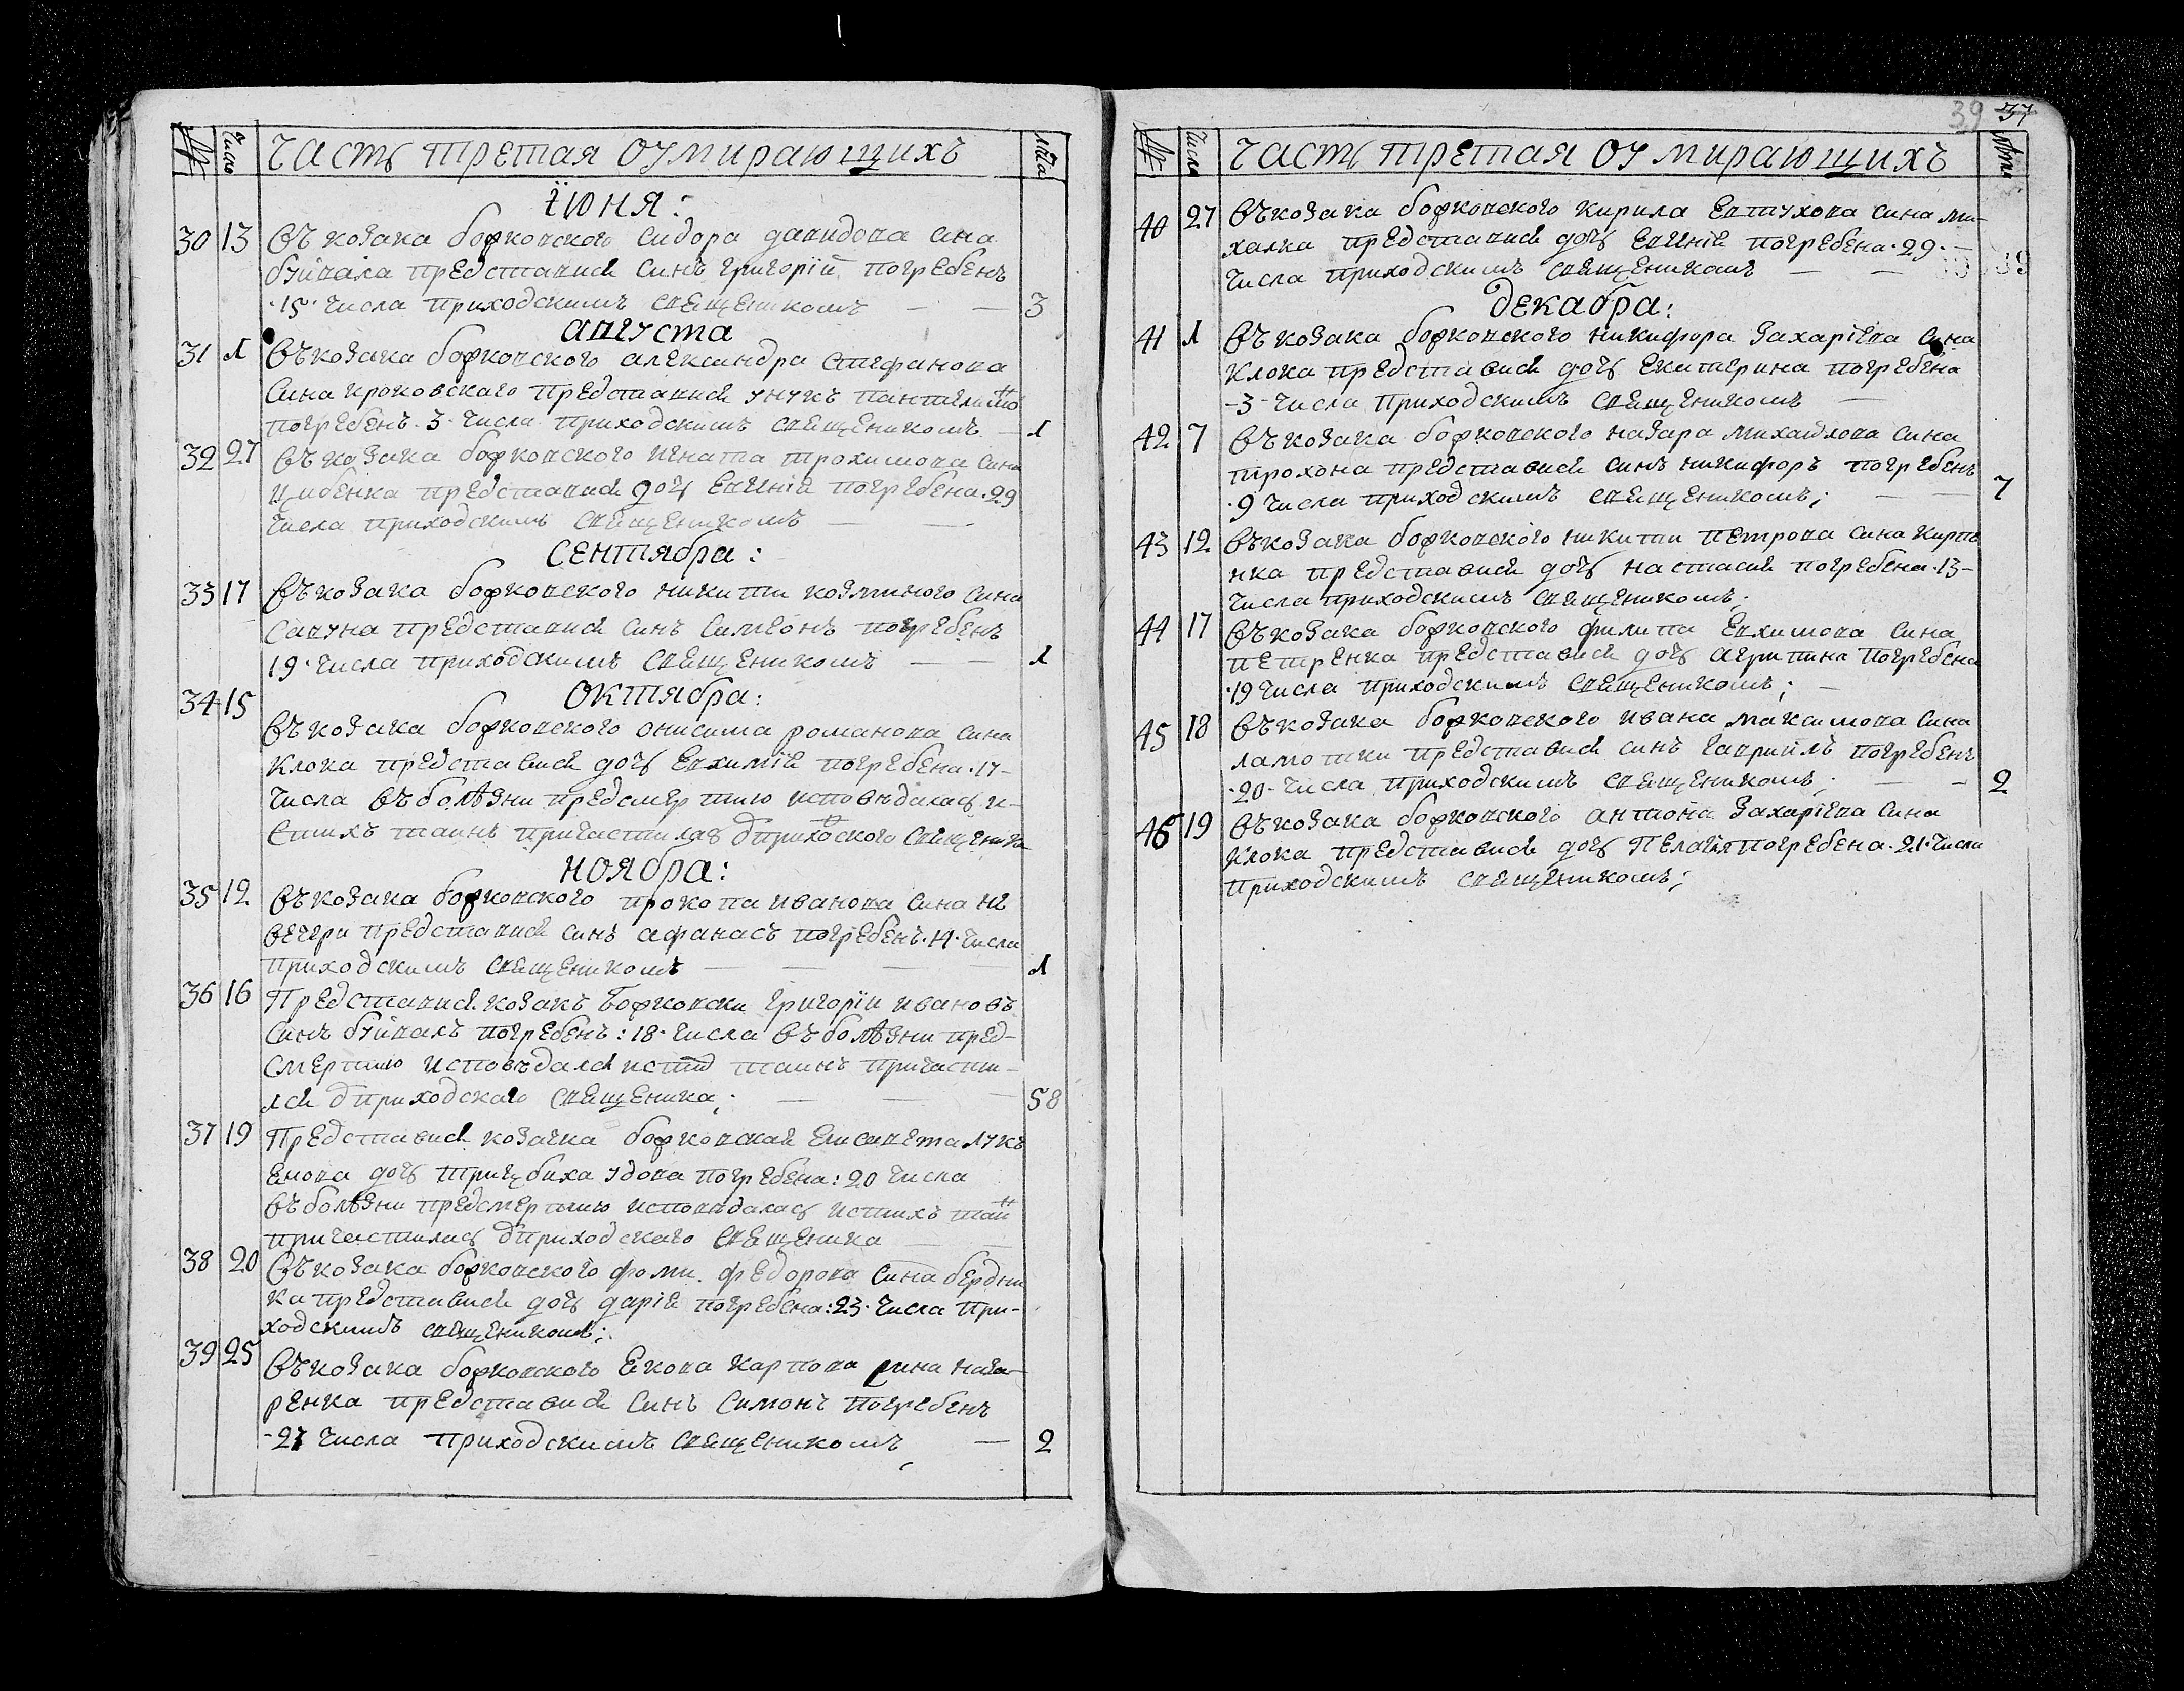 № Число Часть третая оумирающихъ лѣта
їюня:
30 13 Въ козака боркопского Сидора давидова сина
буйвала представися Синъ григорїй погребенъ
·15· числа приходскимъ священикомъ — — 3
августа
31 1 Въ козака борковского александра Стефанова
Сина кроковскаго представися унукъ пантелимо н
погребенъ·3· числа приходскимъ священикомъ — 1
32 27 Въ козака борковского игната трохимова сина
цибенка представися дочъ Евгенія погребена·29
числа приходскимъ священикомъ — —
Сентября:
33 17 Въ козака борковского никити козминого сина
Савуна представися синъ Симеонъ погребенъ
19· числа приходскимъ священикомъ — — 1
34 15 Октября:
Въ козака борковского онисима романова сина
клока представися дочъ Евхимія погребена·17–
числа въ болѣзни предсмертию исповѣдалась и–
Стихъ таинъ причастилас ѿ прихоского священика
ноября:
35 12 Въ козака борковского прокопа иванова сина не
вечери представися синъ афанасъ погребенъ·14· числа
приходскимъ священикомъ — — — 1
36 16 Представися козакъ борковски григорїи ивановъ
синъ буйвалъ погребенъ: 18· числа въ болѣзни пред–
смертию исповѣдался и стих таинъ причасти–
лся ѿ приходскаго священика; — — — 58
37 19 Представися козачка борковская Елисавета лукя
енова дочъ удова погребена: 20 числа
въ болѣзни предсмертию исповидалась и стихъ таи н
причастилась ѿ приходскаго священика
38 20 Въ козака борковского фоми федорова сина бердни
ка представися дочъ дарїя погребена: 23· числа при–
ходскимъ священикомъ;
39 25 Въ козака борковского Якова карпова сина наза–
ренка представися Синъ Симонъ погребенъ
–27 числа приходскимъ священикомъ — 2
39 37
№ Числа Часть третая оумирающихъ лѣта
40 27 Въ козака борковского кирила Евтухова сина ми–
халка представися дочъ Евгенія погребена·29·—
числа приходскимъ священикомъ — —
декабра:
41 1 Въ козака борковского никифора захарїева сина
клока представися дочъ Екатерина погребена
–3– числа приходскимъ священикомъ —
42 7 Въ козака борковского назара михайлова сина
трохона представися синъ никифоръ погребенъ
·9 числа приходскимъ священикомъ; — — 7
43 12 Въ козака борковского никити петрова сина кирпе
нка представися дочъ настасия погребена·13–
числа приходскимъ священикомъ;
44 17 Въ козака борковского филипа Евхимова сина
петренка представися дочъ агрипина погребена
·19 числа приходскимъ священикомъ; —
45 18 Въ козака борковского ивана максимова сина
ламотки представися синъ гавриилъ погребенъ
·20· числа приходскимъ священикомъ; — — 2
46 19 Въ козака борковского антона захарїева сина
клока представися дочъ Пелагия погребена·21· числа
приходскимъ священикомъ;